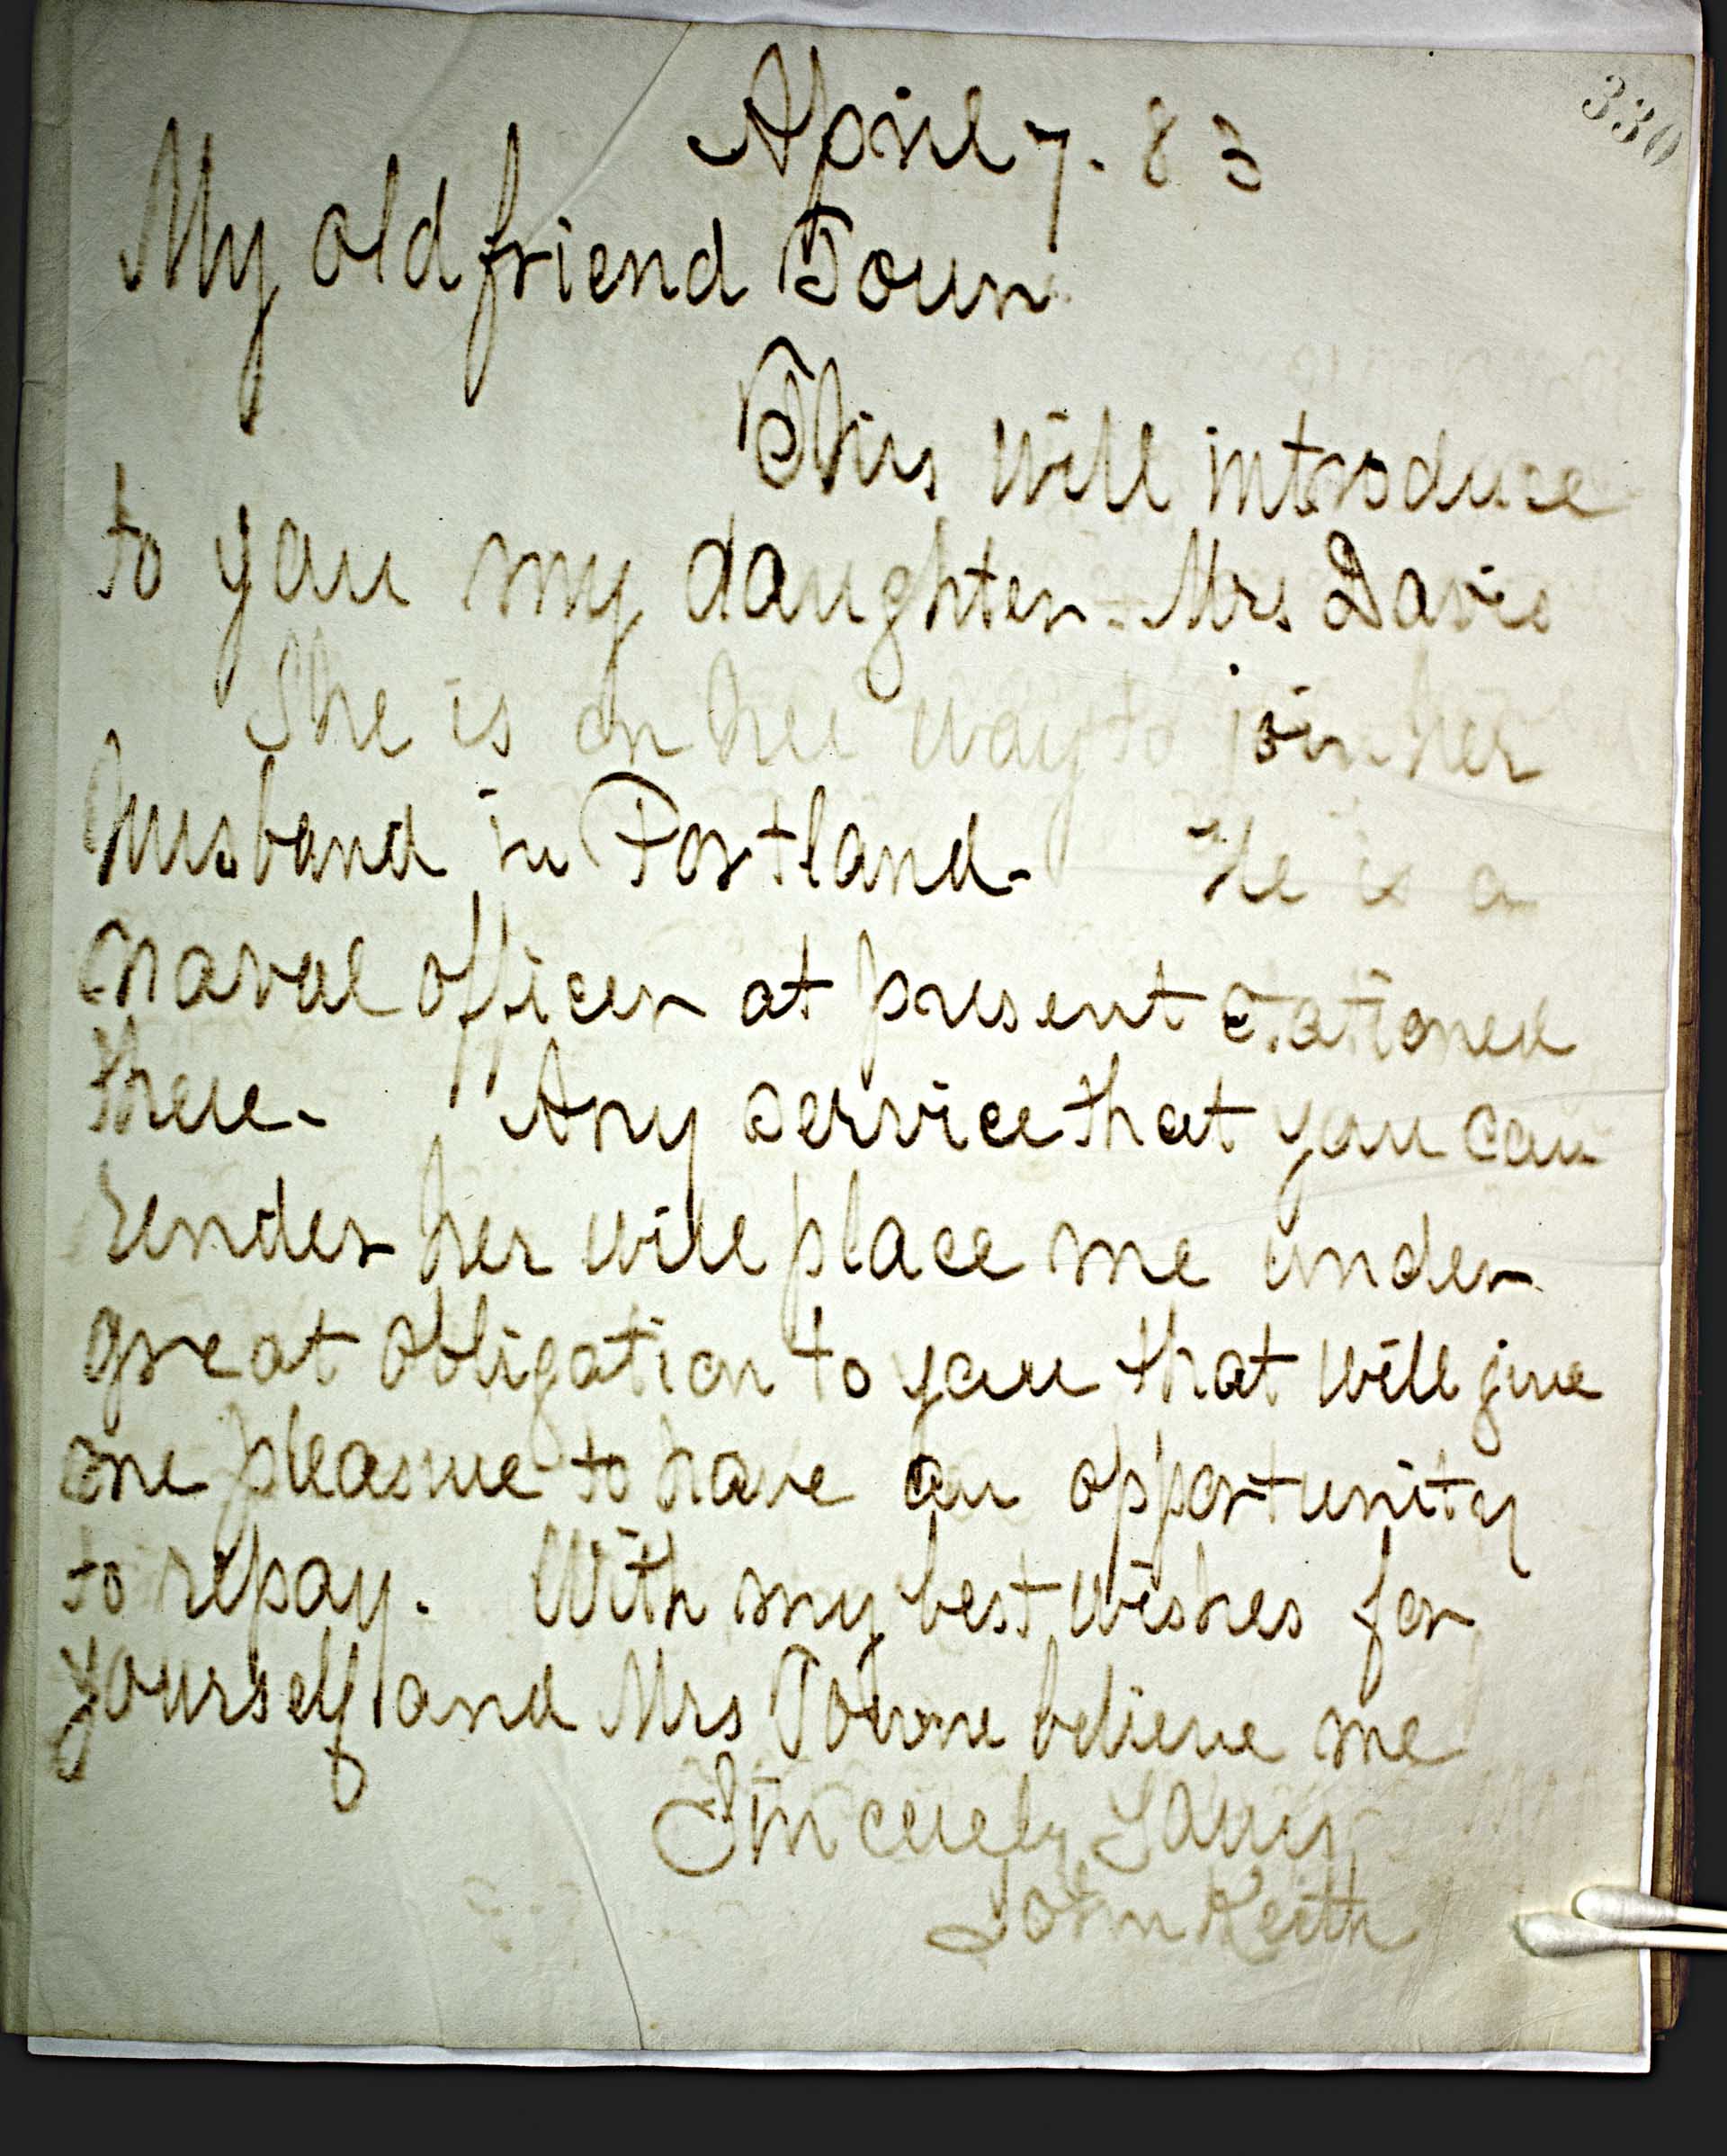 330
April 7. 83
My old friend Town
This will introduce
to you my daughter. Mrs Davis
She is on her way to join her
husband in Portland. He is a
naval officer at present stationed
there. Any service that you can
render her will place me under
great obligation to you that will give
me pleasure to have an opportunity
to repay. With my best wishes for
yourself and Mrs Towne believe me
Sincerely Yours
John Keith